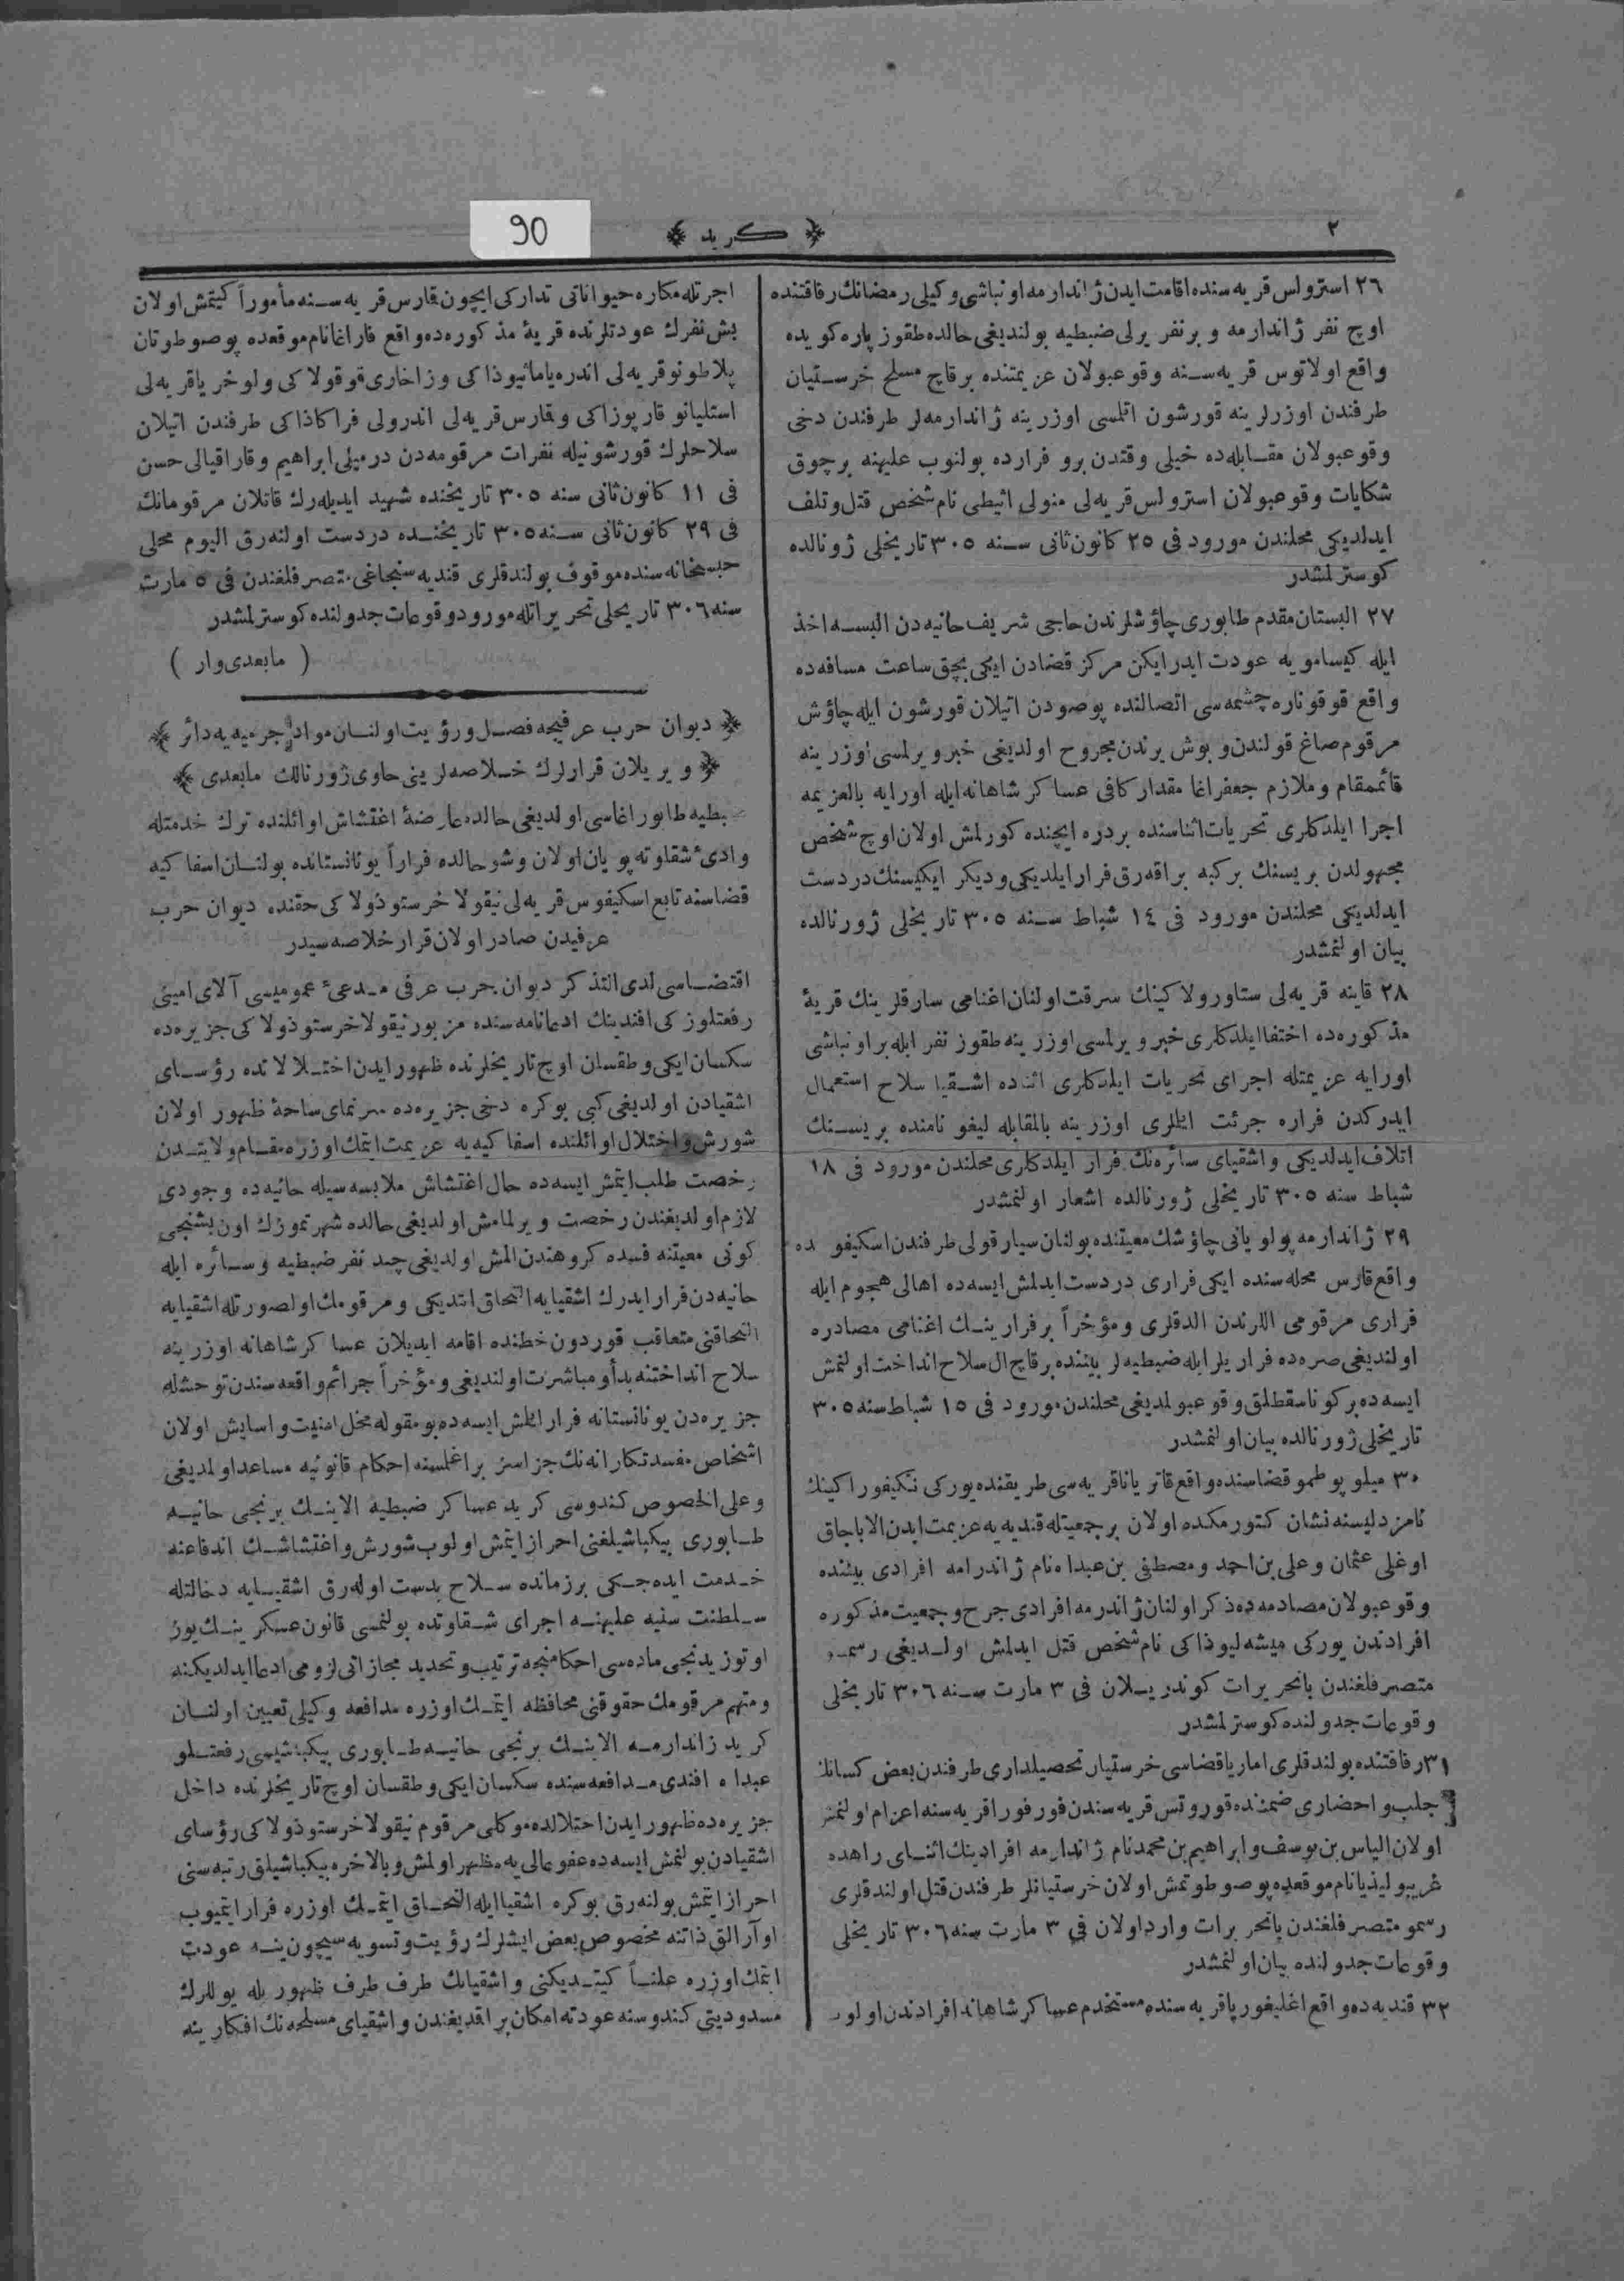 ٢
﴿ كريد ﴾
90
٢٦ استرولس قريه‌سنده اقامت ايدن ژاندارمه اونباشى وكيلى رمضانك رفاقتنده
اوچ نفر ژاندارمه و برنفر يرلى ضبطيه بولنديغى حالده طقوز پاره كويده
واقع اولاتوس قريه‌سنه وقوعبولان عزيمتنده برقاچ مسلح خرستيان
طرفندن اوزرلرينه قورشون اتلمسى اوزرينه ژاندارمه‌لر طرفندن دخى
وقوعبولان مقابله‌ده خيلى وقتدن برو فرارده بولنوب عليهنه برچوق
شكايات وقوعبولان استرولس قريه‌لى منولى اثيطى نام شخص قتل وتلف
ايدلديكى محلندن مورود فى ٢٥ كانون ثانى سنه ٣٠٥ تاريخلى ژونالده
كوسترلمشدر
٢٧ البستان مقدم طابورى چاؤشلرندن حاجى شريف حانيه‌دن البسه اخذ
ايله كيسامويه عودت ايدرايكن مركز قضادن ايكى بچق ساعت مسافه‌ده
واقع قوقوناره چشمه‌سى اتصالنده پوصودن اتيلان قورشون ايله چاؤش
مرقوم صاغ قولندن و بوش يرندن مجروح اولديغى خبر ويرلمسى اوزرينه
قائممقام وملازم جعفراغا مقدار كافى عساكر شاهانه ايله اورايه بالعزيمه
اجرا ايلدكلرى تحريات اثناسنده بردره ايچنده كورلمش اولان اوچ شخص
مجهولدن بريسنك بركبه براقه‌رق فرار ايلديكى وديكر ايكيسنك دردست
ايدلديكى محلندن مورود فى ١٤ شباط سنه ٣٠٥ تاريخلى ژورنالده
بيان اولنمشدر
٢٨ قاينه قريه‌لى ستاورولاكينك سرقت اولنان اغنامى سارقلرينك قريۀ
مذكوره‌ده اختفا ايلدكلرى خبر ويرلمسى اوزرينه طقوز نفر ايله بر اونباشى
اورايه عزيمتله اجراى تحريات ايلدكلرى اثناده اشقيا سلاح استعمال
ايدركدن فراره جرئت ايتلرى اوزرينه بالمقابله ليغو نامنده بريسنك
اتلاف ايدلديكى واشقياى سائره‌نك فرار ايلدكلرى محلندن مورود فى ١٨
شباط سنه ٣٠٥ تاريخلى ژورنالده اشعار اولنمشدر
٢٩ ژاندارمه پولويانى چاؤشك معيتنده بولنان سيارقولى طرفندن اسكيفوده
واقع قارس محله‌سنده ايكى فرارى دردست ايدلمش ايسه‌ده اهالى هجوم ايله
فرارى مرقومى اللرندن الدقلرى ومؤخراً برفرارينك اغنامى مصادره
اولنديغى صره‌ده فراريلر ايله ضبطيه‌لر بيننده برقاچ ال سلاح انداخت اولنمش
ايسه‌ده بركونا سقطلق وقوعبولمديغى محلندن مورود فى ١٥ شباط سنه ٣٠٥
تاريخلى ژورنالده بيان اولنمشدر
٣٠ ميلوپوطمو قضاسنده واقع قاترياناقريه‌سى طريقنده يوركى نكيفوراكينك
نامزدليسنه نشان كتورمكده اولان برجمعيتله قنديه‌يه عزيمت ايدن الاباجاق
اوغلى عثمان وعلى بن احمد ومصطفى بن عبدالله نام ژاندرامه افرادى بيننده
وقوعبولان مصادمه‌ده ذكراولنان ژاندرمه افرادى جرح وجمعيت مذكوره
افرادندن يوركى ميشه‌ليوذاكى نام شخص قتل ايدلمش اولديغى رسمو
متصرفلغندن باتحريرات كوندريلان فى ٣ مارت سنه ٣٠٦ تاريخلى
وقوعات جدولنده كوسترلمشدر
٣١ رفاقتنده بولندقلرى اماريا قضاسى خرستيان تحصيلدارى طرفندن بعض كسانك
جلب و احضارى ضمننده قوروتس قريه‌سندن فورفوراقريه‌سنه اعزام اولنمش
اولان الياس بن يوسف وابراهيم بن محمد نام ژاندارمه افرادينك اثناى راهده
غريبوليذيا نام موقعده پوصو طوتمش اولان خرستيانلر طرفندن قتل اولندقلرى
رسمو متصرفلغندن باتحريرات وارد اولان فى ٣ مارت سنه ٣٠٦ تاريخلى
وقوعات جدولنده بيان اولنمشدر
٣٢ قنديه‌ده واقع اغليغورياقريه‌سنده مستخدم عساكر شاهانه افرادندن اولوب
اجرتله مكاره حيواناتى تداركى ايچون قارس قريه‌سنه مأموراً كيتمش اولان
بش نفرك عودتلرنده قريۀ مذكوره‌ده واقع فاراغا نام موقعده پوصو طوتان
پلاطونو قريه‌لى اندره‌ياماثيوذاكى وزاخارى قوقولاكى ولوخرياقريه‌لى
استليانو قارپوزاكى وقارس قريه‌لى اندرولى فراكاذاكى طرفندن اتيلان
سلاحلرك قورشونيله نفرات مرقومه‌دن درميلى ابراهيم وقاراقيالى حسن
فى ١١ كانون ثانى سنه ٣٠٥ تاريخنده شهيد ايديله‌رك قاتلان مرقومانك
فى ٢٩ كانون ثانى سنه ٣٠٥ تاريخنده دردست اولنه‌رق اليوم محلى
حبسخانه‌سنده موقوف بولندقلرى قنديه سنجاغى متصرفلغندن فى ٥ مارت
سنه ٣٠٦ تاريخلى تحريراتله مورود وقوعات جدولنده كوسترلمشدر
( مابعدى وار )
﴿ ديوان حرب عرفيجه فصل ورؤيت اولنان مواد جرميه‌يه دائر ﴾
﴿ ويريلان قرارلرك خلاصه‌لرينى حاوى ژورنالك مابعدى ﴾
ضبطيه طابور اغاسى اولديغى حالده عارضۀ اغتشاش اوائلنده ترك خدمتله
وادئ شقاوته پويان اولان وشو حالده فراراً يونانستانده بولنان اسفاكيه
قضاسنه تابع اسكيفوس قريه‌لى نيقولا خرستوذولاكى حقنده ديوان حرب
عرفيدن صادر اولان قرار خلاصه‌سيدر
اقتضاسى لدى التذكر ديوان حرب عرفى مدعئ عموميسى آلاى امينى
رفعتلو زكى افندينك ادعانامه‌سنده مزبور نيقولا خرستوذولاكى جزيره‌ده
سكسان ايكى وطقسان اوچ تاريخلرنده ظهور ايدن اختلالاتده رؤساى
اشقيادن اولديغى كبى بوكره دخى جزيره‌ده سرنماى ساحۀ ظهور اولان
شورش واختلال اوائلنده اسفاكيه‌يه عزيمت ايتمك اوزره مقام ولايتدن
رخصت طلب ايتمش ايسه‌ده حال اغتشاش ملابسه‌سيله حانيه‌ده وجودى
لازم اولديغندن رخصت ويرلمامش اولديغى حالده شهر تموزك اون بشنجى
كونى معيتنه فسده كروهندن المش اولديغى چند نفر ضبطيه وسائره ايله
حانيه‌دن فرار ايدرك اشقيايه التحاق ايتديكى ومرقومك اولصورتله اشقيايه
التحاقنى متعاقب قوردون خطنده اقامه ايديلان عساكر شاهانه اوزرينه
سلاح انداختنه بدأ ومباشرت اولنديغى ومؤخراً جرائم واقعه‌سندن توحشله
جزيره‌دن يونانستانه فرار ايتمش ايسه‌ده بومقوله مخل امنيت واسايش اولان
اشخاص مفسدتكارانه‌نك جزاسز براغلمسنه احكام قانونيه مساعد اولمديغى
وعلى الخصوص كندوسى كريد عساكر ضبطيه الاينك برنجى حانيه
طابورى بيكباشيلغنى احراز ايتمش اولوب شورش واغتشاشك اندفاعنه
خدمت ايده‌جكى برزمانده سلاح بدست اوله‌رق اشقيايه دخالتله
سلطنت سنيه عليهنه اجراى شقاوتده بولنمسى قانون عسكرينك يوز
اوتوز يدنجى ماده‌سى احكامنجه ترتيب وتحديد مجازاتى لزومى ادعا ايدلديكنه
ومتهم مرقومك حقوقنى محافظه ايتمك اوزره مدافعه وكيلى تعيين اولنان
كريد ژاندارمه الاينك برنجى حانيه طابورى بيكباشيسى رفعتلو
عبدالله افندى مدافعه‌سنده سكسان ايكى وطقسان اوچ تاريخلرنده داخل
جزيره‌ده ظهور ايدن اختلالده موكلى مرقوم نيقولا خرستوذولاكى رؤساى
اشقيادن بولنمش ايسه‌ده عفو عالى‌يه مظهر اولمش وبالاخره بيكباشيلق رتبه‌سنى
احراز ايتمش بولنه‌رق بوكره اشقيا ايله التحاق ايتمك اوزره فرار ايتميوب
اوآرالق ذاتنه مخصوص بعض ايشلرك رؤيت وتسويه‌سيچون ينه عودت
ايتمك اوزره علناً كيتديكنى واشقيانك طرف طرف ظهوريله يوللرك
مسدوديتى كندوسنه عودته امكان براقديغندن واشقياى مسلحه‌نك افكارينه